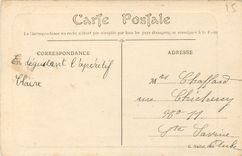 15
Carte Postale
La Correspondance au recto n'étant pas acceptée par tous les pays étrangers, se renseigner à la Poste
CORRESPONDANCE
ADRESSE
En dégustant l'apéritif
Claire
Mme Chaffard
rue Chicherey
No 77
Ste Savine